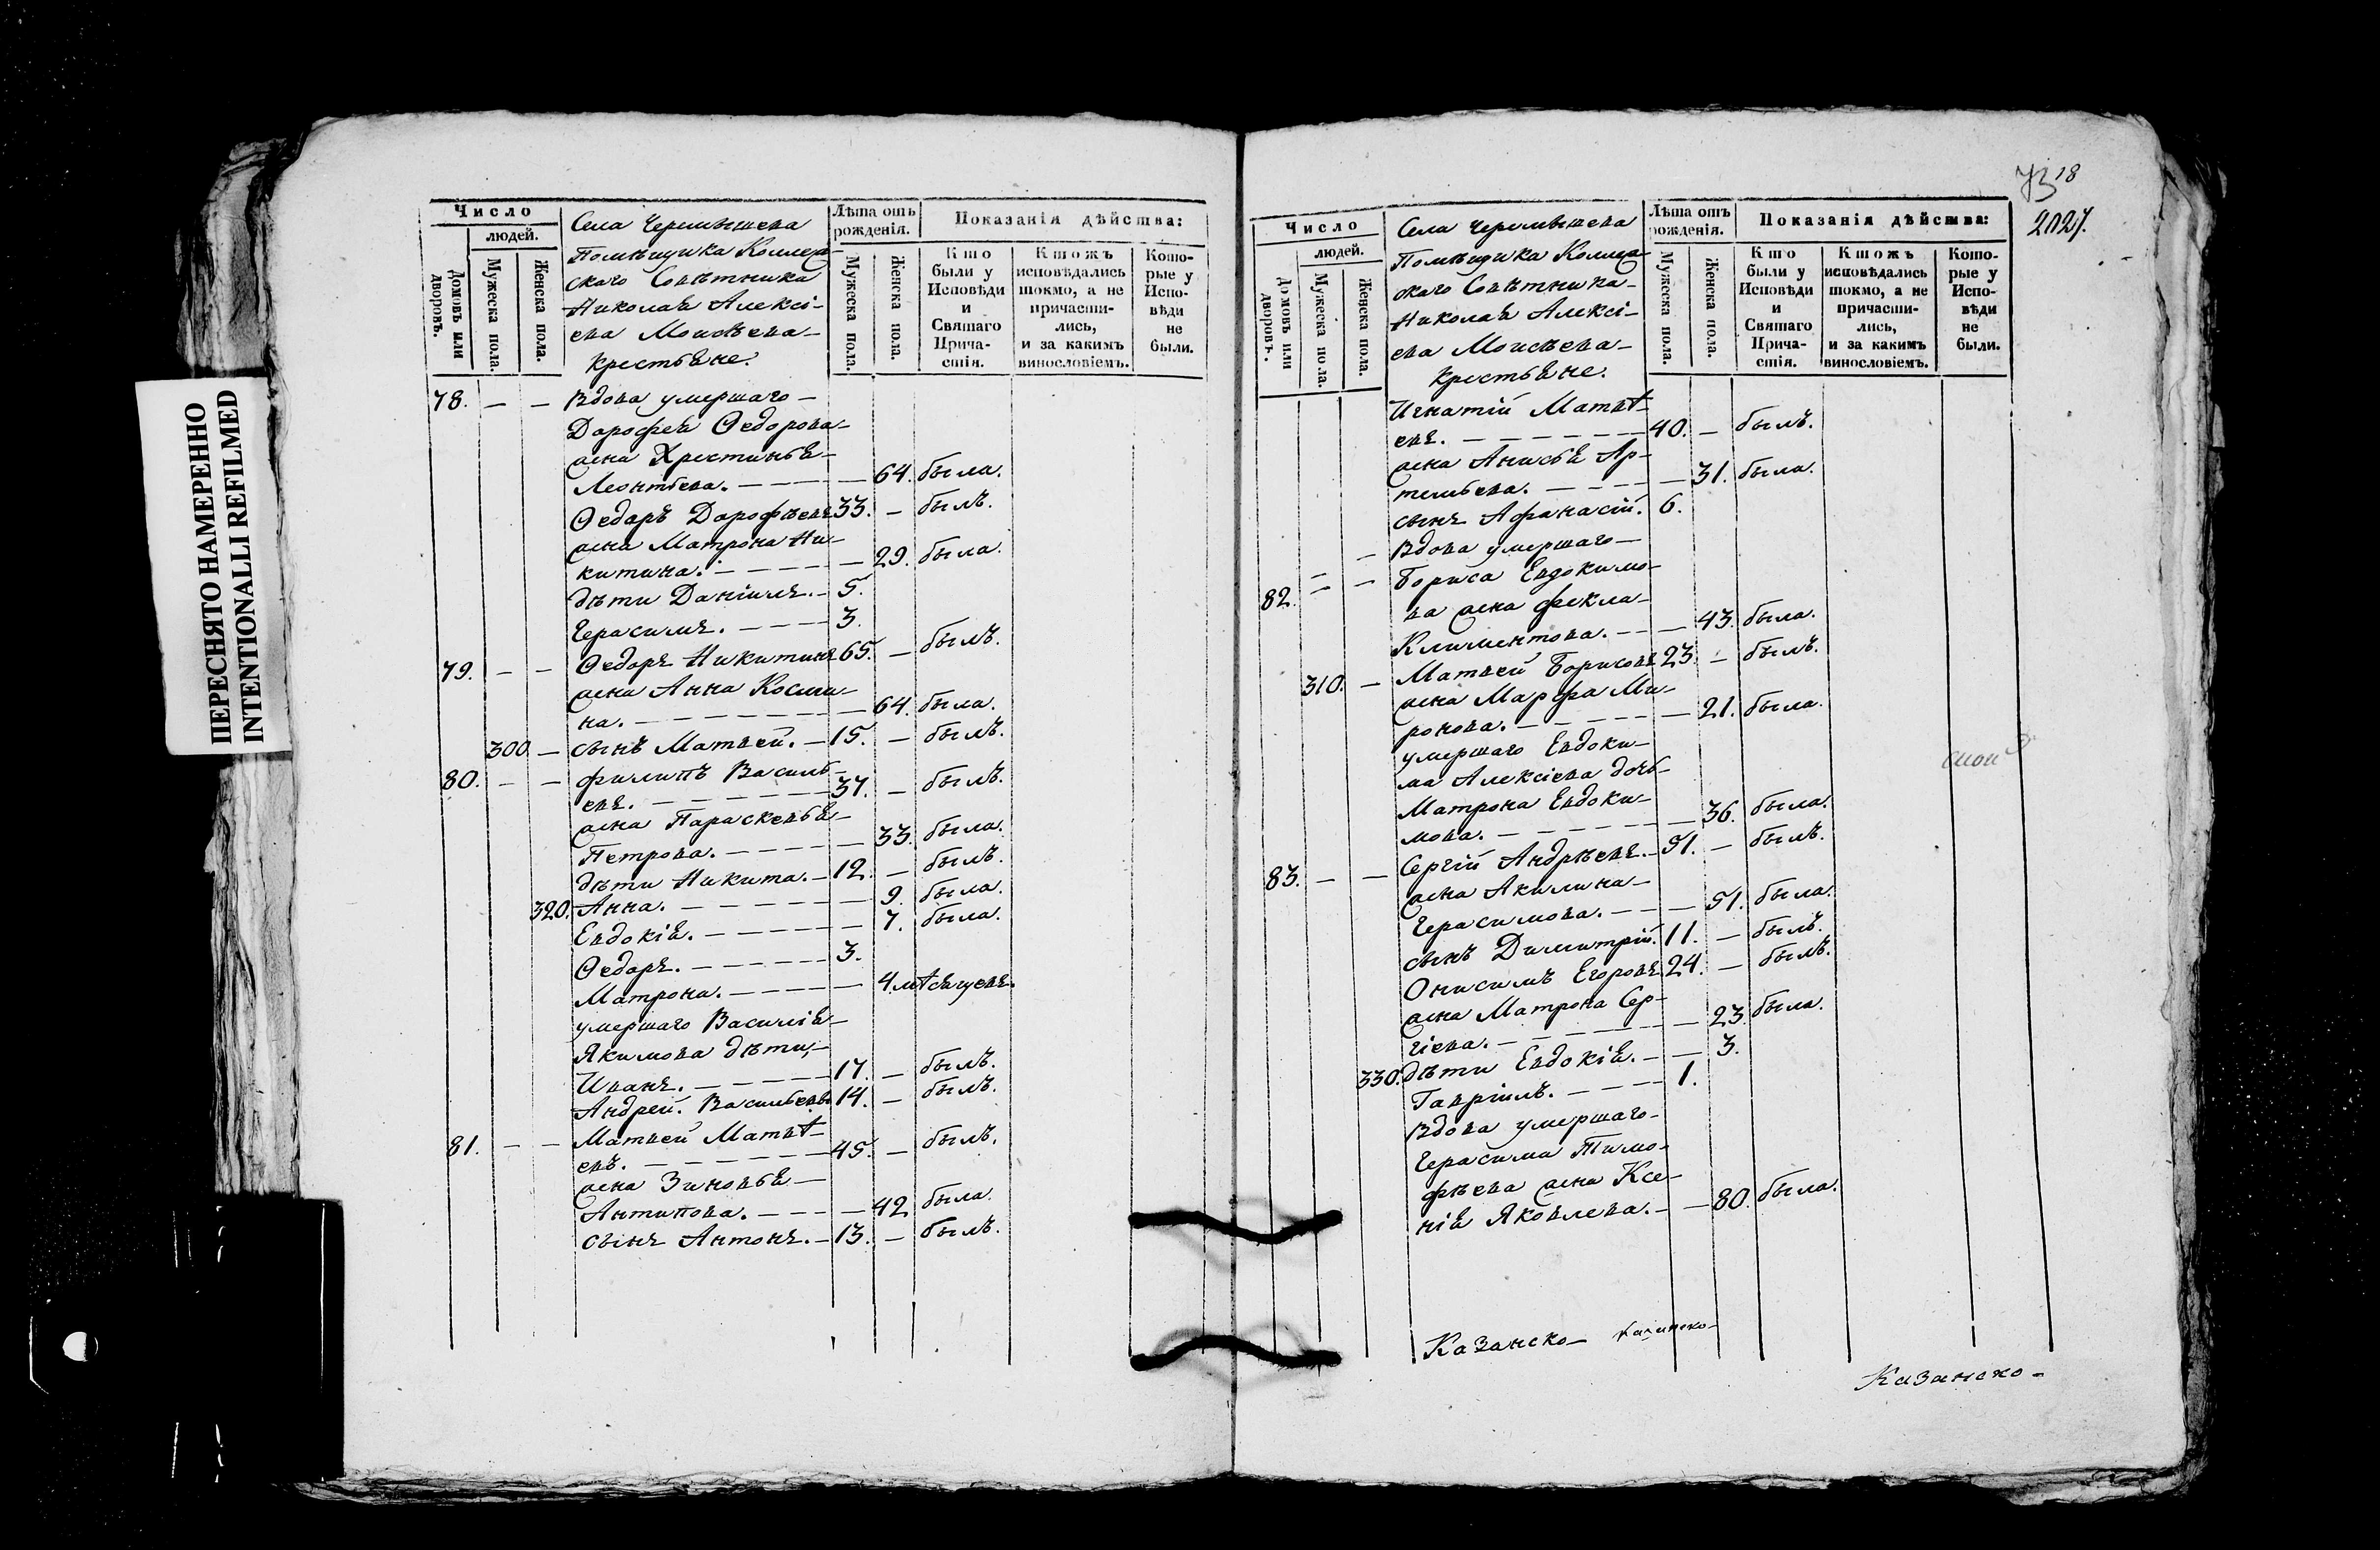 ПЕРЕСНЯТО НАМЕРЕННО
INTENTIONALLI REFILMED
Число
людей.
Домовъ или дворовъ.
Мужеска пола.
Женска пола.
Села Черемышева
Помѣщика Коллеж-
скаго Совѣтника
Николая Алексі-
ева Моисѣева
крестьяне.
Лѣта отъ рожденія.
Мужеска пола.
Женска пола.
Показанія дѣйства:
Кто были у Исповѣди и Святаго Прича-стія.
Ктожъ исповѣдались токмо, а не причасти-лись, и за какимъ винословіемъ.
Кото-рые у Испо-вѣди не были.
78. — — Вдова умершаго
Дарофея Ѳедорова
жена Христинья
Леонтьева. — 64. была.
Ѳедоръ Дарофѣевъ 33. — былъ.
жена Матрона Ни-
китина. — 29. была.
дѣти Даніилъ. 5.
Герасимъ. 3.
79. — — Ѳедоръ Никитинъ 65. — былъ.
жена Анна Косми-
на. — 64. была.
300. — сынъ Матвей. 15. — былъ.
80. — — Филипъ Василь-
евъ. 37. — былъ.
жена Параскевья
Петрова. — 33. была.
дѣти Никита. 12. — былъ.
320. Анна. — 9. была.
Евдокія. — 7. была.
Ѳедоръ. 3.
Матрона. — 4. мѣсяцевъ.
умершаго Василія
Якимова дѣти,
Иванъ. 17. — былъ.
Андрей. Васильевы 14. — былъ.
81. — — Матвей Матвѣ-
евъ. 45. — былъ.
жена Зиновья
Антипова. — 42 была.
сынъ Антонъ. 13. — былъ.
18
Число
людей.
Домовъ или дворовъ.
Мужеска пола.
Женска пола.
Села Черемышева
Помѣщика Коллеж-
скаго Совѣтника
Николая Алексі-
ева Моисѣева
крестьяне.
Лѣта отъ рожденія.
Мужеска пола.
Женска пола.
Показанія дѣйства:
Кто были у Исповѣди и Святаго Прича-стія.
Ктожъ исповѣдались токмо, а не причасти-лись, и за какимъ винословіемъ.
Кото-рые у Испо-вѣди не были.
Игнатій Матвѣ-
евъ. 40. — былъ.
жена Анисья Ар-
темьева. — 31. была.
сынъ Афанасій. 6.
82. — — Вдова умершаго
Бориса Евдокимо-
ва жена Фекла
Климентова. — 43. была.
310. — Матвей Борисовъ 23. — былъ.
жена Марфа Ми-
ронова. — 21. была.
умершаго Евдоки-
ма Алексіева дочь
Матрона Евдоки-
мова. — 36. была.
83. — — Сергій Андрѣевъ. 51. — былъ.
жена Акилина
Герасимова. — 51. была.
сынъ Димитрій. 11. — былъ.
Онисимъ Егоровъ 24. — былъ.
жена Матрона Сер-
гіева. — 23. была.
330. дѣти Евдокія. — 3.
Гавріилъ. 1.
Вдова умершаго
Герасима Тимо-
фѣева жена Ксе-
нія Яковлева. — 80. была.
Казанско-
Казанско-
Казанско-